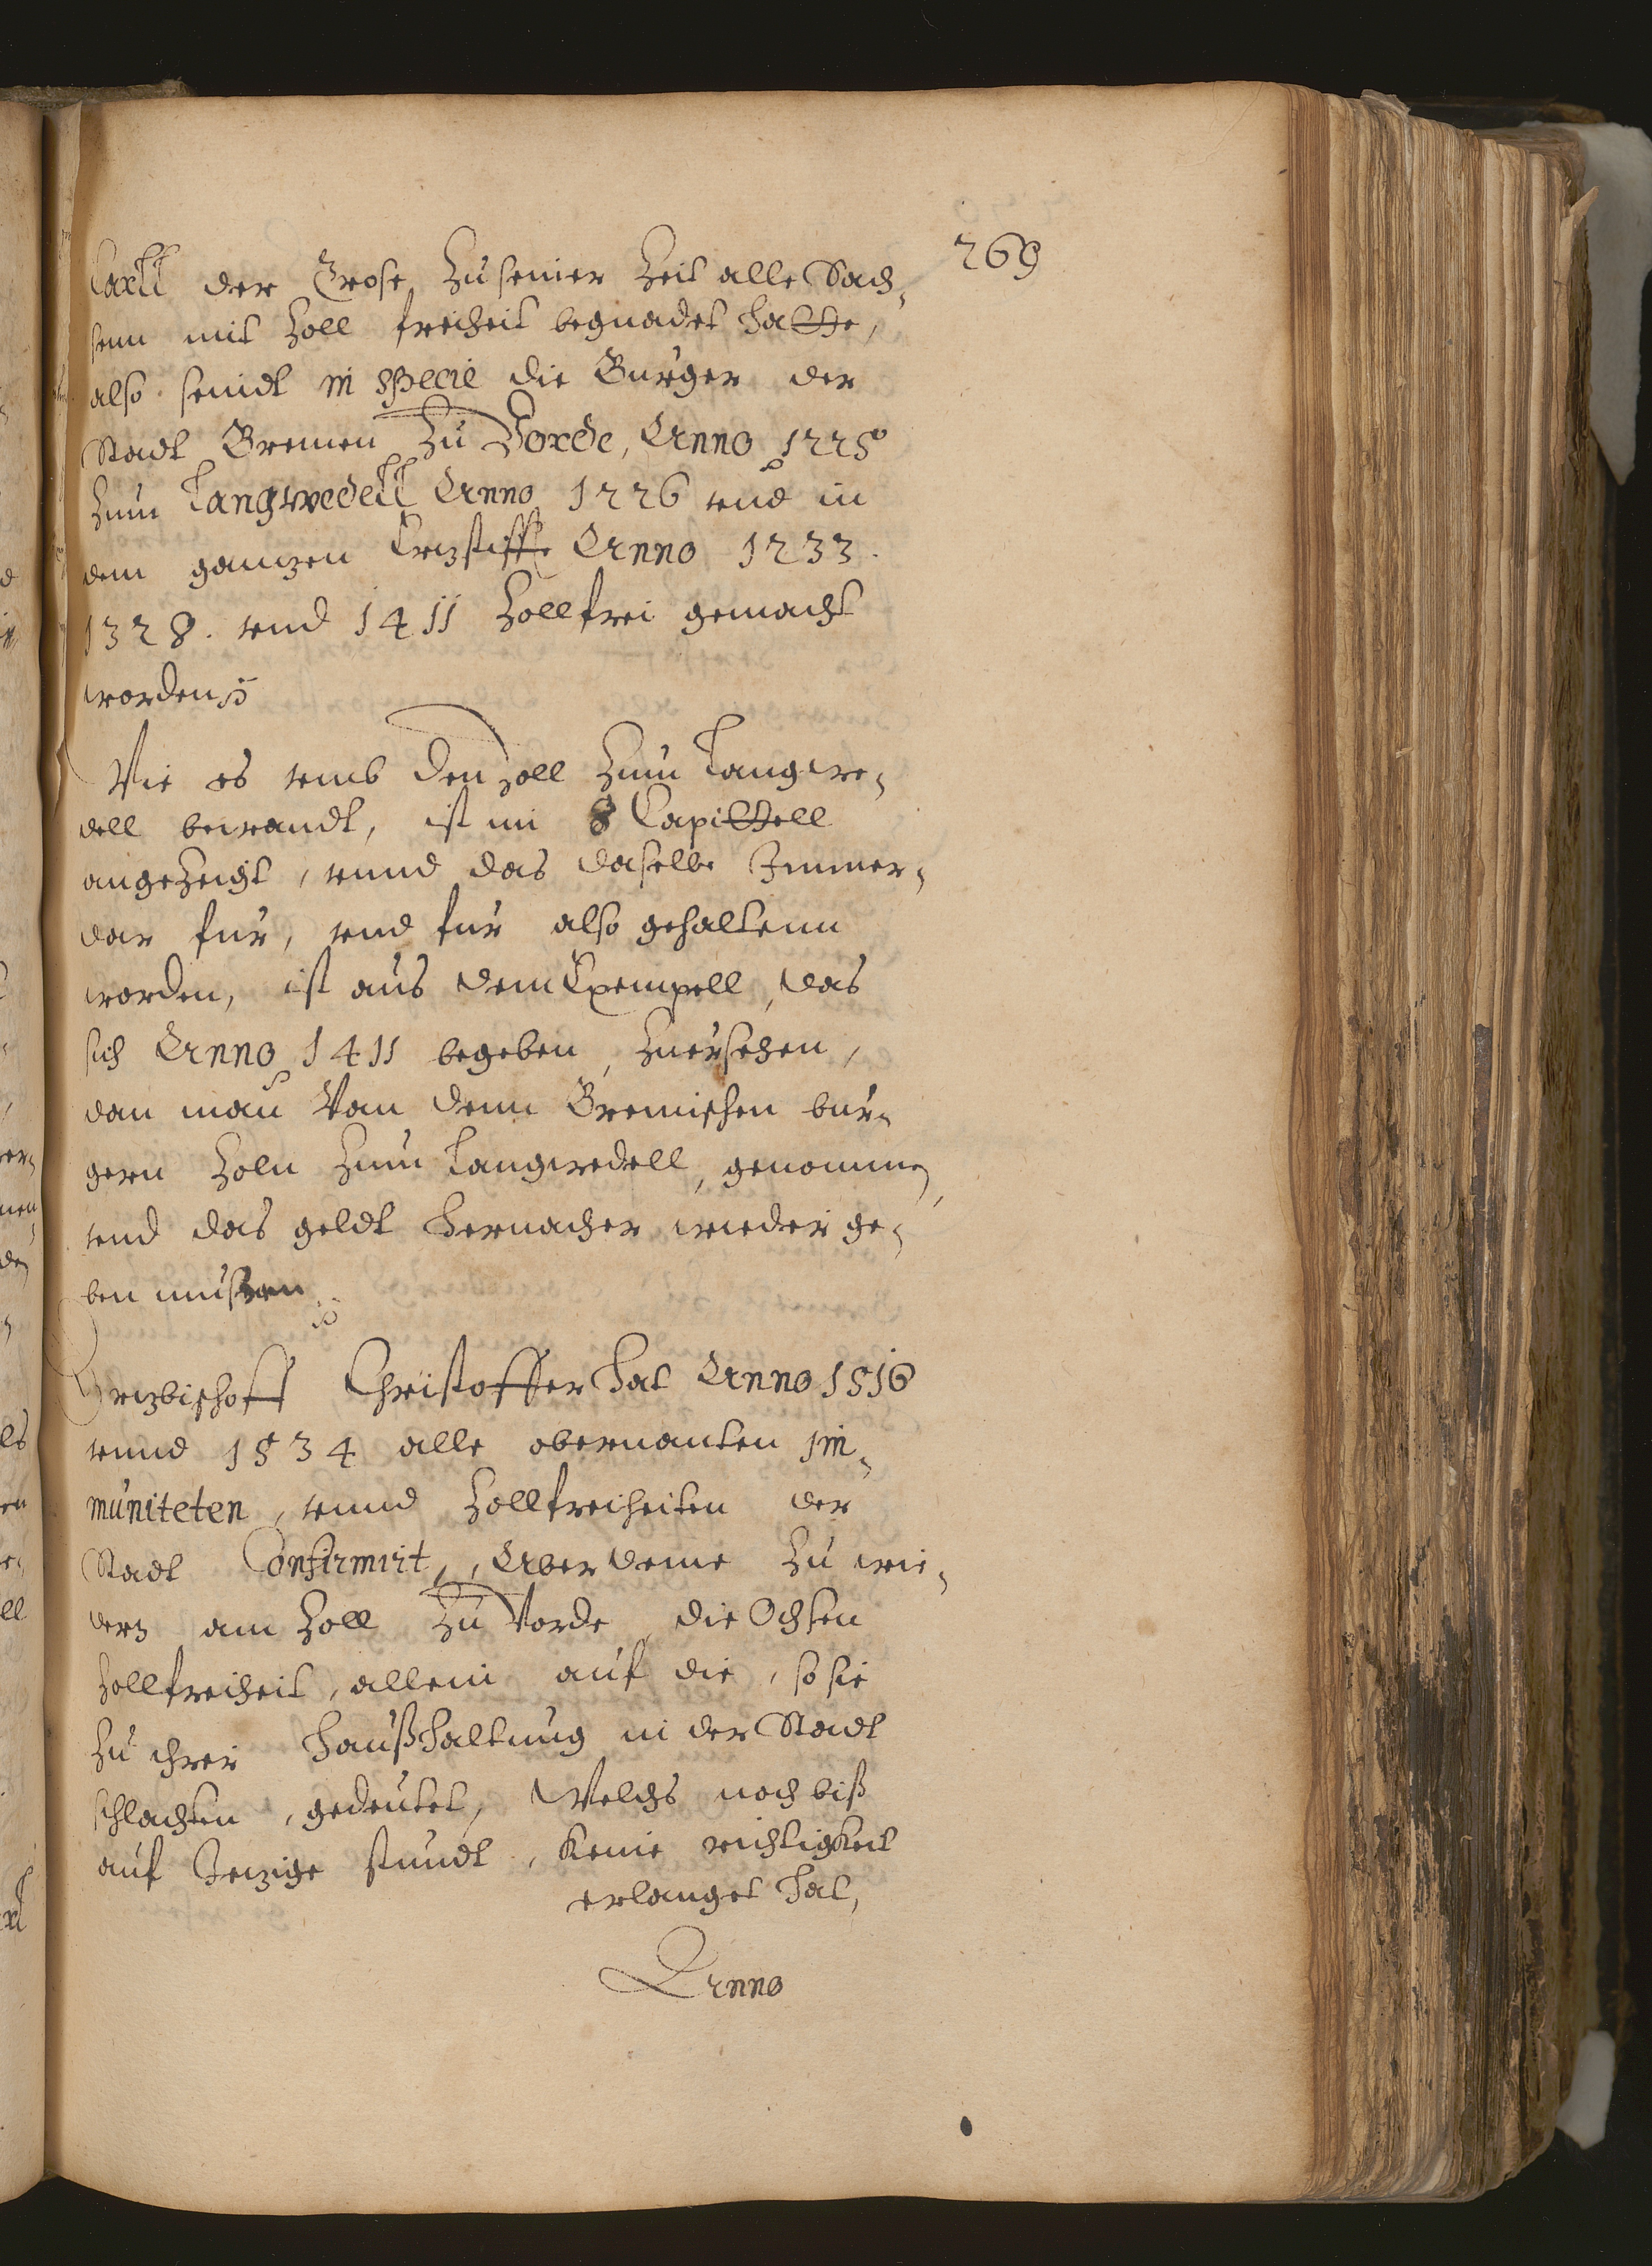 269
Carll der Grose zu seiner Zeit alle Sach¬
senn mit Zoll freiheit begnadet hatte,
also seindt in specie die Burger der
Stadt Bremen zu Vorde, Anno 1225
zum Langwedell Anno 1226 vnd in
dem ganzen Erzstiffte Anno 1233.
1328. vnd 1411 Zollfrei gemacht
worden
Wie es vmb den Zoll zum Langwe¬
dell bewandt, ist im 8 Capittell
angezeigt, vnnd das daselbe Immer¬
dar fur, vnd fur also gehaltenn
worden, ist aus dem Exempell, das
sich Anno 1411 begeben, zuersehen,
dan man Van denn Bremischen bur¬
gern Zoln zum Langwedell, genommen,
vnd das geldt hernacher wieder ge¬
ben mussen
Erzbischoff Christoffer hat Anno 1516
vnnd 1534 alle obernanten im¬
muniteten, vnnd Zollfreiheiten der
Stadt Confirmirt, Aber deme zu wie¬
dern am Zoll zu Vorde die Ochsen
Zollfreiheit, allein auf die, so sie
zu ihrer haußhaltung in der Stadt
schlachten, gedeutet, Welchs noch biß
auf Iezige stundt, keine richtigkeit
erlanget hat,
Anno